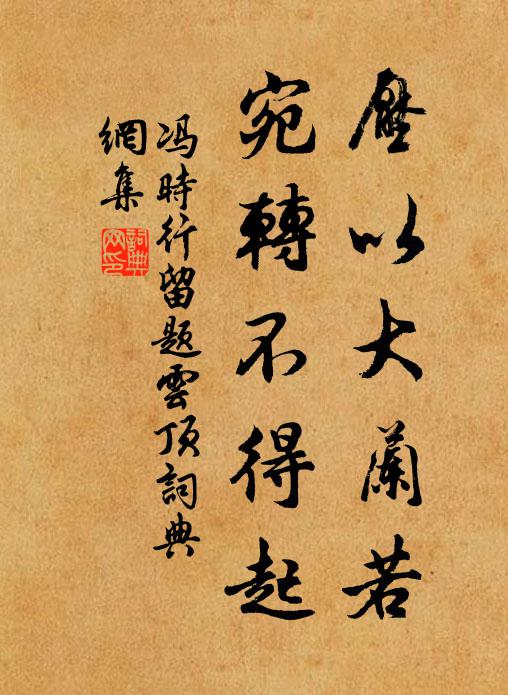 壓以大蘭若
宛轉不得起
馮時行留題雲頂詞典
網集
詞典網印